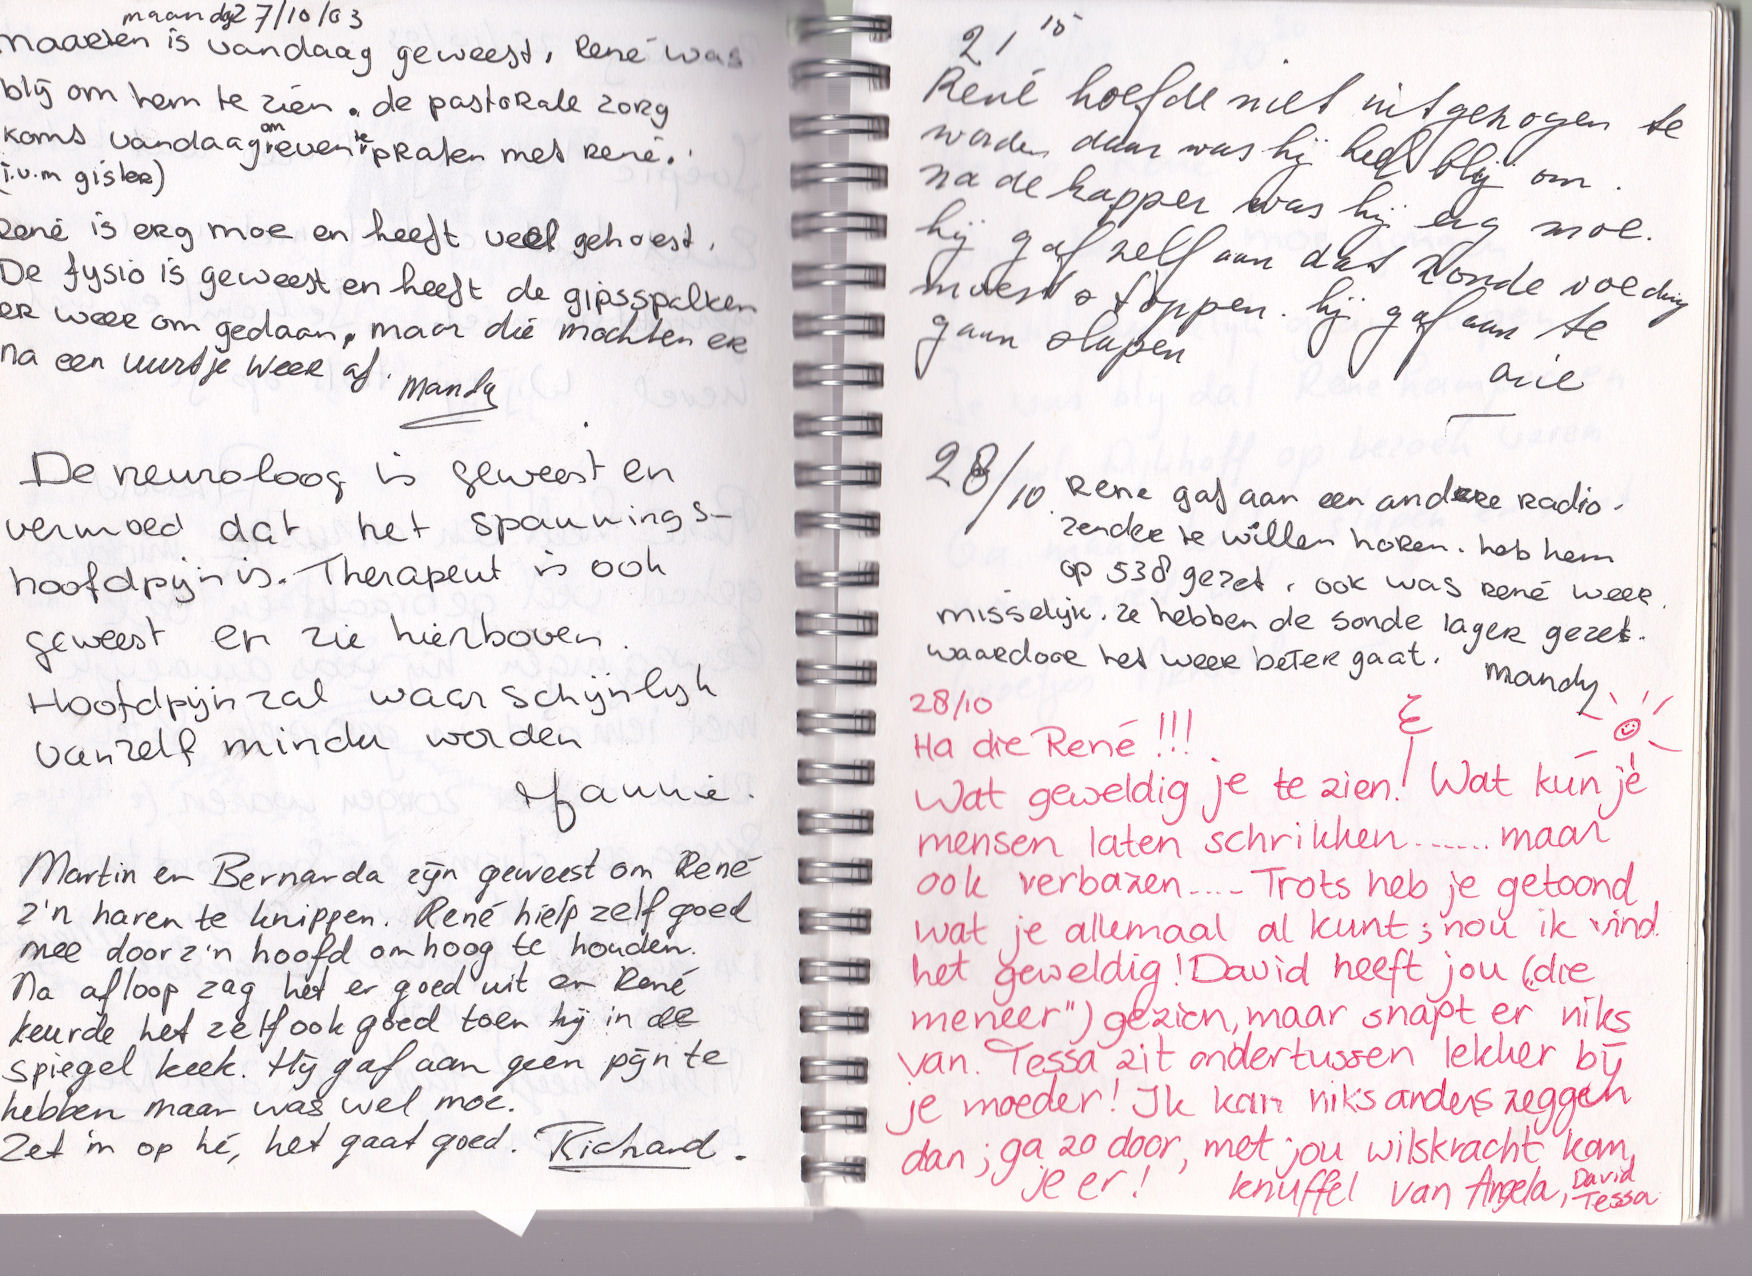 maandag 27/10/03
Maarten is vandaag geweest, René was
blij om hem te zien. de pastorale zorg
komt vandaag om even te praten met René.
(i.v.m gister)
René is erg moe en heeft veel gehoest.
De fysio is geweest en heeft de gipsspalken
er weer om gedaan, maar die mochten er
na een uurtje weer af. Mandy
De neuroloog is geweest en
vermoed dat het spannings-
hoofdpijn is. Therapeut is ook
geweest en zie hierboven.
Hoofdpijn zal waarschijnlijk
vanzelf minder worden
Hannie.
Martin en Bernarda zijn geweest om René
z'n haren te knippen. René hielp zelf goed
mee door z'n hoofd omhoog te houden.
Na afloop zag het er goed uit en René
keurde het zelf ook goed toen hij in de
spiegel keek. Hij gaf aan geen pijn te
hebben maar was wel moe.
Zet 'm op hé, het gaat goed. Richard.
21 15
René hoefde niet uitgezogen te
worden daar was hij heel blij om.
na de kapper was hij erg moe.
hij gaf zelf aan dat zonde voeding
moest stoppen. hij gaf aan te
gaan slapen
arie
28/10. Rene gaf aan een andere radio-
zender te willen horen. heb hem
op 538 gezet, ook was René weer
misselijk. ze hebben de sonde lager gezet.
waardoor het weer beter gaat. Mandy
28/10
Ha die René!!!
Wat geweldig je te zien! Wat kun je
mensen laten schrikken....... maar
ook verbazen.... Trots heb je getoond
wat je allemaal al kunt; nou ik vind
het geweldig! David heeft jou („die
meneer") gezien, maar snapt er niks
van. Tessa zit ondertussen lekker bij
je moeder! Ik kan niks anders zeggen
dan; ga zo door, met jou wilskracht kom
je er! knuffel van Angela, David
Tessa